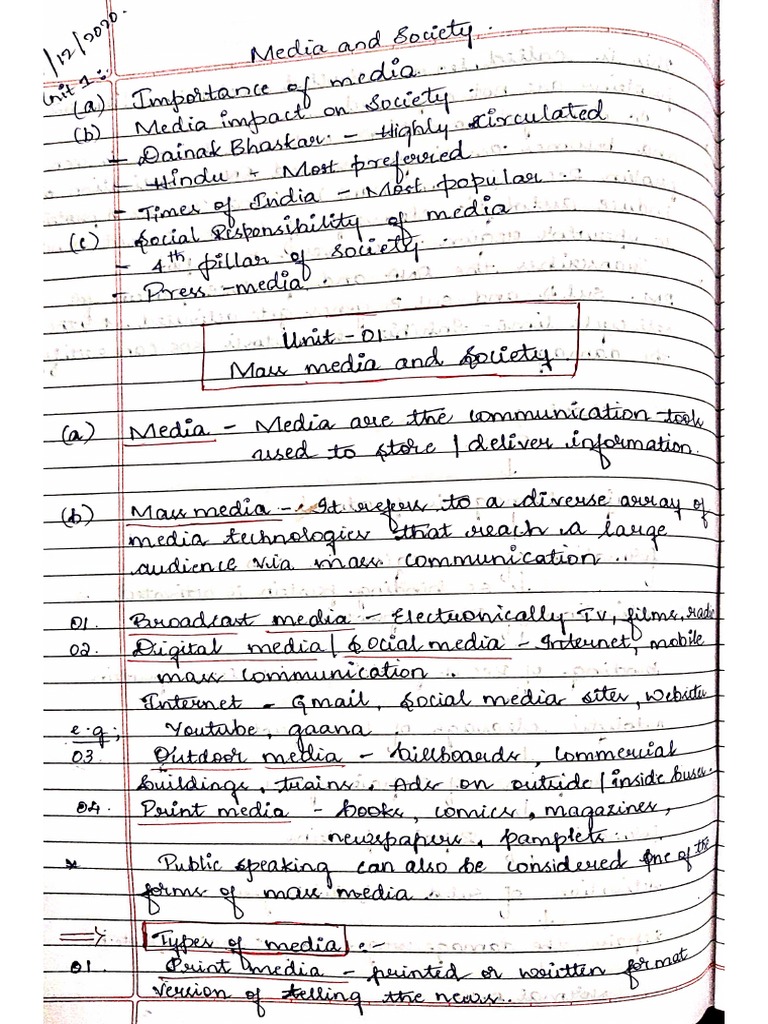 /12/2020.
Media and Society.
Unit 1:-
(a) Importance of media
(b) Media impact on Society.
- Dainak Bhaskar - Highly circulated
- Hindu - Most preferred
- Times of India - Most popular.
(c) Social Responsibility of media
- 4th pillar of society.
- Press - media.
Unit - 01.
Mass media and Society
(a) Media - Media are the communication tools
used to store / deliver information.
(b) Mass media - It refers to a diverse array of
media technologies that reach a large
audience via mass communication.
01. Broadcast media - Electronically TV, films, radio
02. Digital media / Social media - Internet, mobile
mass communication.
Internet - Gmail, Social media sites, website
e.g; Youtube, gaana.
03. Outdoor media - billboards, commercial
buildings, trains, Ads on outside / inside buses.
04. Print media - books, comics, magazines,
newspapers, pamplets.
* Public speaking can also be considered one of the
forms of mass media.
=> Types of media :-
01. Print media - printed or written format
version of telling the news.